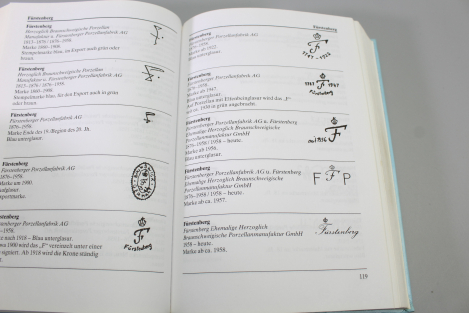 Fürstenberg
Herzoglich Braunschweigische Porzellan
Manufaktur u. Fürstenberger Porzellanfabrik AG
1813–1876 / 1876–1956.
Marke 1860–1908.
Stempelmarke blau, im Export auch grün oder
braun.
Fürstenberg
Herzoglich Braunschweigische Porzellan
Manufaktur u. Fürstenberger Porzellanfabrik AG
1813–1876 / 1876–1956.
Marke 1860–1908.
Stempelmarke blau, für den Export auch in grün
oder braun.
Fürstenberg
Fürstenberger Porzellanfabrik AG
1876–1956.
Marke Ende des 19./Beginn des 20. Jh.
Blau unterglasur.
Fürstenberg
Fürstenberger Porzellanfabrik AG
1876–1956.
Marke um 1900.
Exportmarke
Fürstenberg
Fürstenberger Porzellanfabrik AG
1876–1956.
nach 1918 – Blau unterglasur.
1900 wird das „F" vereinzelt unter einer
signiert. Ab 1918 wird die Krone ständig
Fürstenberg
Fürstenberg
Fürstenberg
Fürstenberger Porzellanfabrik AG
1876–1956.
Marke ab 1922.
Blau unterglasur.
F
1747–1922
Fürstenberg
Fürstenberger Porzellanfabrik AG
1876–1956.
Marke ab 1947.
Blau unterglasur.
Auf Porzellan mit Elfenbeinglasur wird das „F"
seit ca. 1950 in grün angebracht.
1747 F 1947
Fürstenberg
Fürstenberg
Fürstenberger Porzellanfabrik AG u. Fürstenberg
Ehemalige Herzoglich Braunschweigische
Porzellanmanufaktur GmbH
1876–1956 / 1956 – heute.
Marke ab 1956.
Blau unterglasur.
F
Fürstenberg
Fürstenberger Porzellanfabrik AG u. Fürstenberg
Ehemalige Herzoglich Braunschweigische
Porzellanmanufaktur GmbH
1876–1956 / 1956 – heute.
Marke ab ca. 1957.
F P
Fürstenberg
Fürstenberg Ehemalige Herzoglich
Braunschweigische Porzellanmanufaktur GmbH
1956 – heute.
Marke ab ca. 1958.
Fürstenberg
119